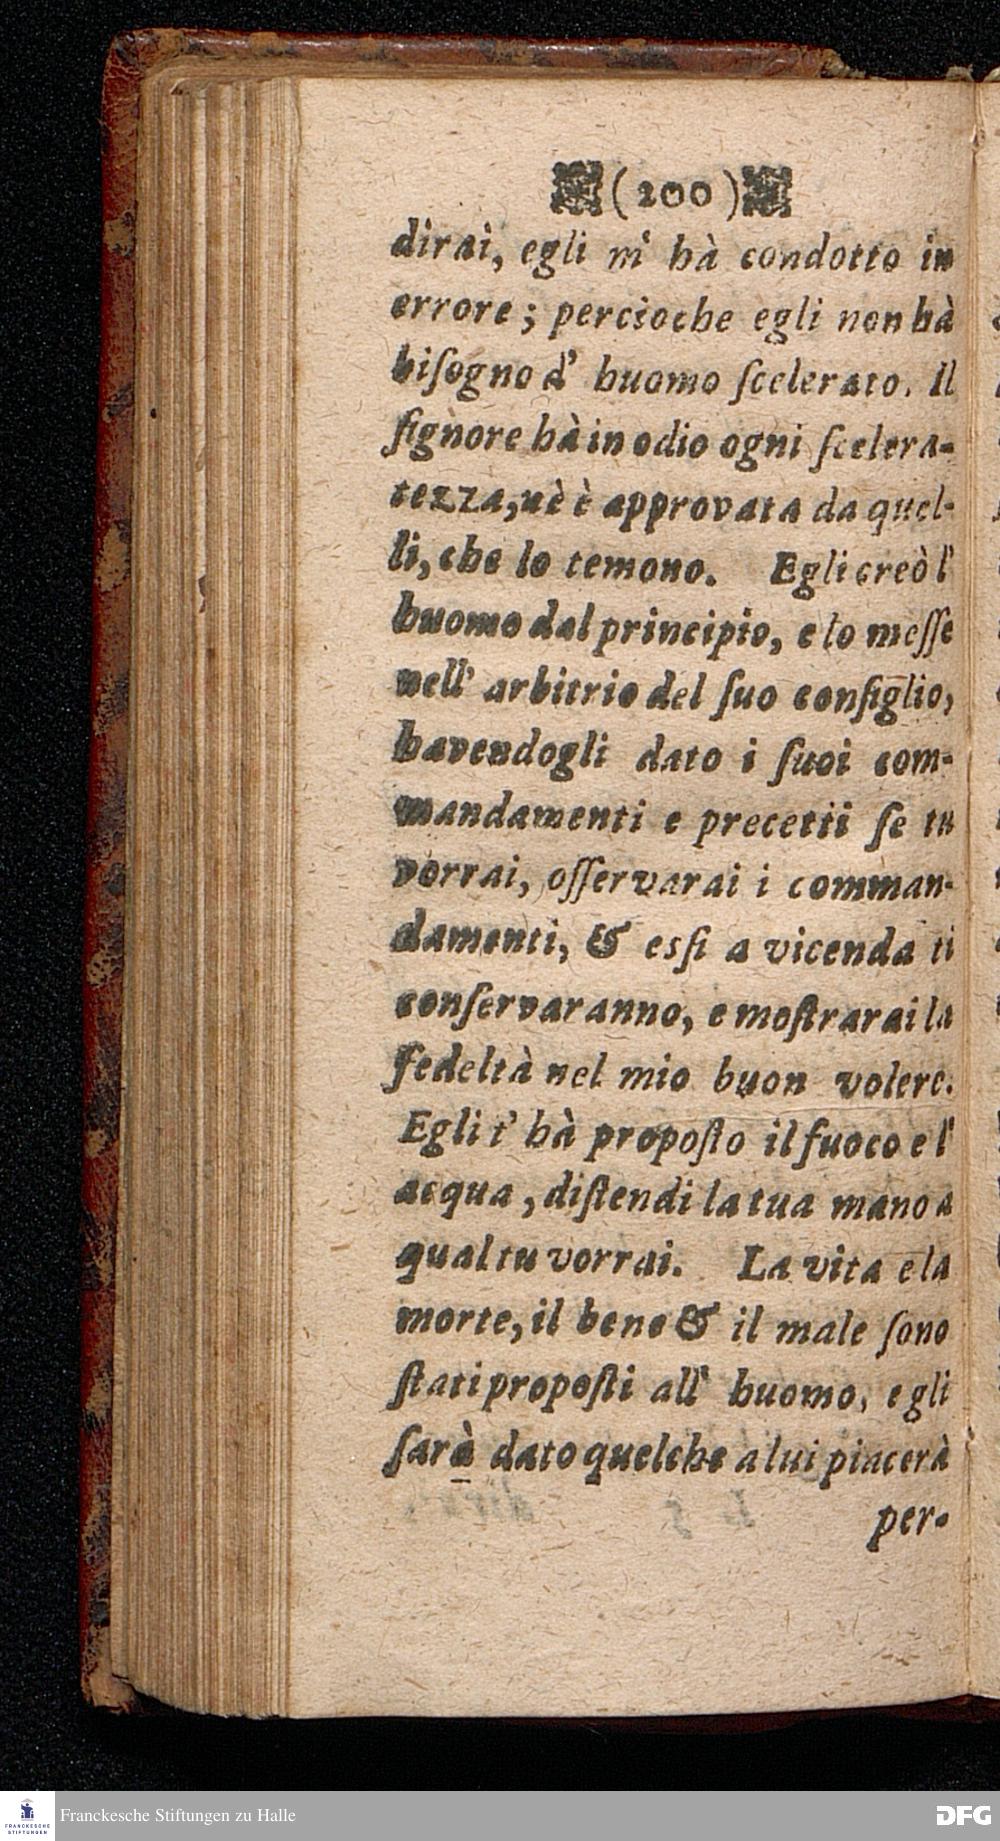 (200)
dirai, egli m' hà condotto in
errore; percioche egli non hà
biſogno d' huomo ſcelerato. Il
ſignore hà in odio ogni ſcelera-
tezza, nè è approvata da quel-
li, che lo temono. Egli creò l'
huomo dal principio, e lo meſſe
nell' arbitrio del ſuo conſiglio,
havendogli dato i ſuoi com-
mandamenti e precetti ſe tu
vorrai, oſſervarai i comman-
damenti, & esſi a vicenda ti
conſervaranno, e moſtrarai la
fedeltà nel mio buon volere.
Egli t' hà propoſto il fuoco e l'
acqua, diſtendi la tua mano a
qual tu vorrai. La vita e la
morte, il bene & il male ſono
ſtati propoſti all' huomo, e gli
ſarà dato quelche a lui piacerà
per-
Franckesche Stiftungen zu Halle
FRANCKESCHE
STIFTUNGEN
DFG